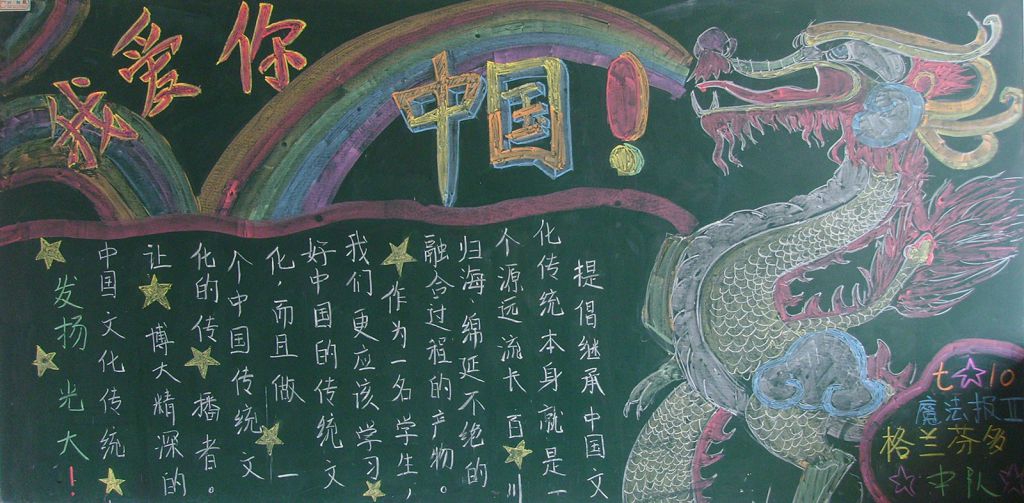 我爱你
中国!
提倡继承中国文
化传统本身就是一
个源远流长百川
归海,绵延不绝的
融合过程的产物。
作为一名学生,
我们更应该学习
好中国的传统文
化,而且做一
个中国传统文
化的传播者。
让博大精深的
中国文化传统
发扬光大!
七☆10
魔法报II
格兰芬多
中队